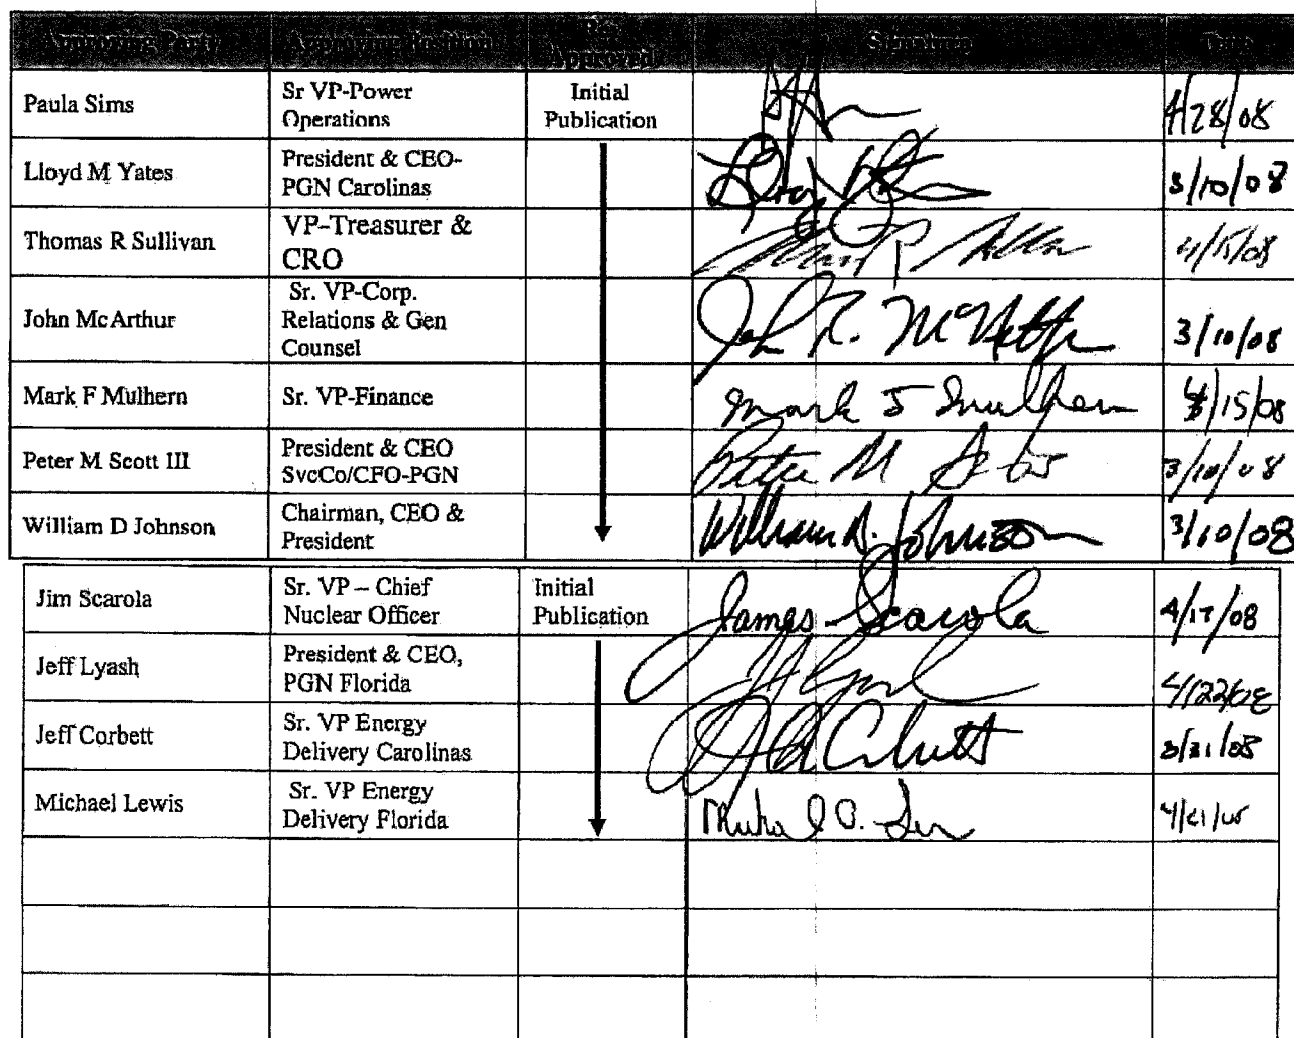 Approving Party Approving Position Rev. Approved Signature Date
Paula Sims Sr VP-Power Operations Initial Publication 4/28/08
Lloyd M Yates President & CEO- PGN Carolinas 3/10/08
Thomas R Sullivan VP–Treasurer & CRO 4/15/08
John McArthur Sr. VP-Corp. Relations & Gen Counsel John R. McArthur 3/10/08
Mark F Mulhern Sr. VP-Finance Mark F Mulhern 4/15/08
Peter M Scott III President & CEO SvcCo/CFO-PGN Peter M Scott 3/10/08
William D Johnson Chairman, CEO & President William D. Johnson 3/10/08
Jim Scarola Sr. VP – Chief Nuclear Officer Initial Publication James Scarola 4/17/08
Jeff Lyash President & CEO, PGN Florida 4/22/08
Jeff Corbett Sr. VP Energy Delivery Carolinas Corbett 3/31/08
Michael Lewis Sr. VP Energy Delivery Florida